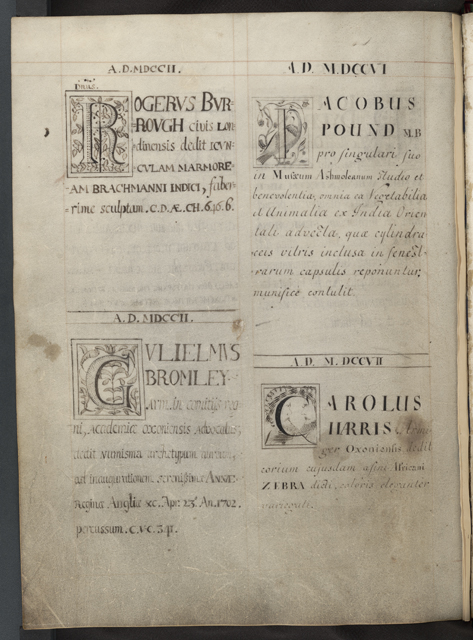 A.D. MDCCII.
ROGERVS BVR-
-ROVGH civis LON
dinensis dedit ICVN-
CVLAM MARMORE-
AM BRACHMANNI INDICI, fabe-
-rime sculptam. C.D.Æ.CH. 636.6.
A.D. MDCCII.
GVLIELMVS
BROMLEY
Arm. in comitiis reg
ni, Academiæ oxoniensis Advocatus,
dedit numisma
ad inaugurationem serenissimæ ANNÆ
Reginæ Angliæ &c. Apr: 23. An. 1702.
percussum. C.V.C. 341.
A.D. M.DCCVI
JACOBUS
POUND M.B
pro singulari suo
in Musæum Ashmoleanum studio et
benevolentia, omnia ea Vegetabilia
et Animalia ex India Orien
tali advecta, quæ cylindra
ceis vitris inclusa in fenest
rarum capsulis reponuntur,
munifice contulit.
A.D. M.DCCVII
CAROLUS
HARRIS Armi
ger Oxoniensis dedit
corium cujusdam asini Africani
ZEBRA dicti, coloris eleganter
variegati.